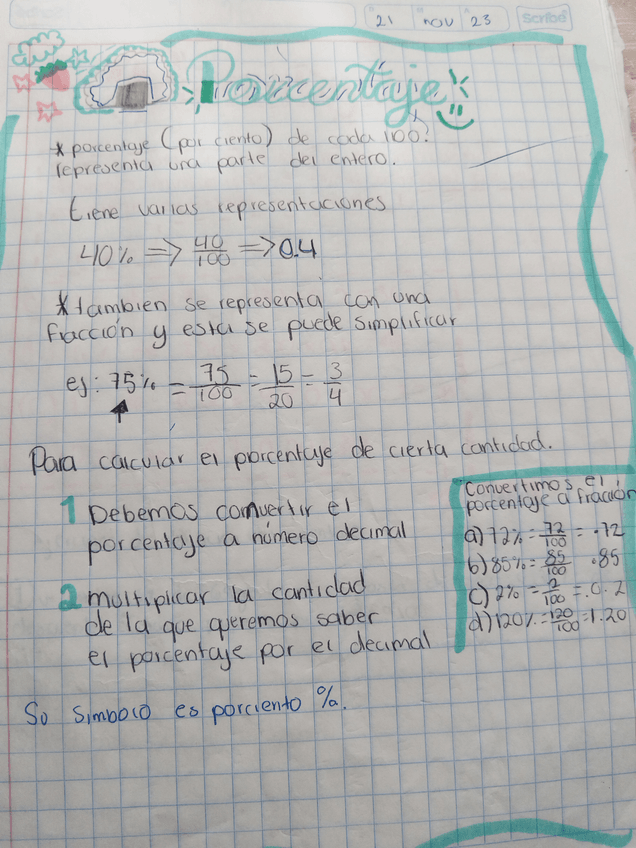 21 nov 23 Scribe
Porcentaje
* porcentaje (por ciento) de cada 100?
representa una parte del entero.
tiene varias representaciones
40% => 40/100 => 0.4
* tambien se representa con una
fracción y esta se puede simplificar
ej: 75% = 75/100 = 15/20 = 3/4
Para calcular el porcentaje de cierta cantidad.
1 Debemos convertir el
porcentaje a número decimal
2 multiplicar la cantidad
de la que queremos saber
el porcentaje por el decimal
Convertimos el
porcentaje a fracción
a) 72% = 72/100 = .72
b) 85% = 85/100 .85
c) 2% = 2/100 = .0.2
d) 120% = 120/100 = 1.20
So simbolo es porciento %.